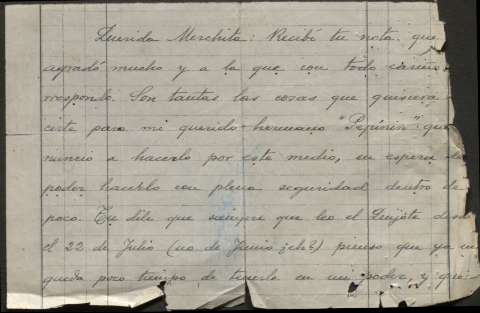 Querida Merchita: Recibí tu nota que
agradó mucho y a la que con todo cariño
rrespondo. Son tantas las cosas que quisiera
cirte para mi querido hermano "Pepinin" que
nuncio a hacerlo por este medio, en espera de
poder hacerlo con plena seguridad dentro de
poco. Tu dile que siempre que leo el Quijote desd
el 22 de Julio (no de Junio ¿eh?) pienso que ya m
queda poco tiempo de tenerlo en mi poder, y